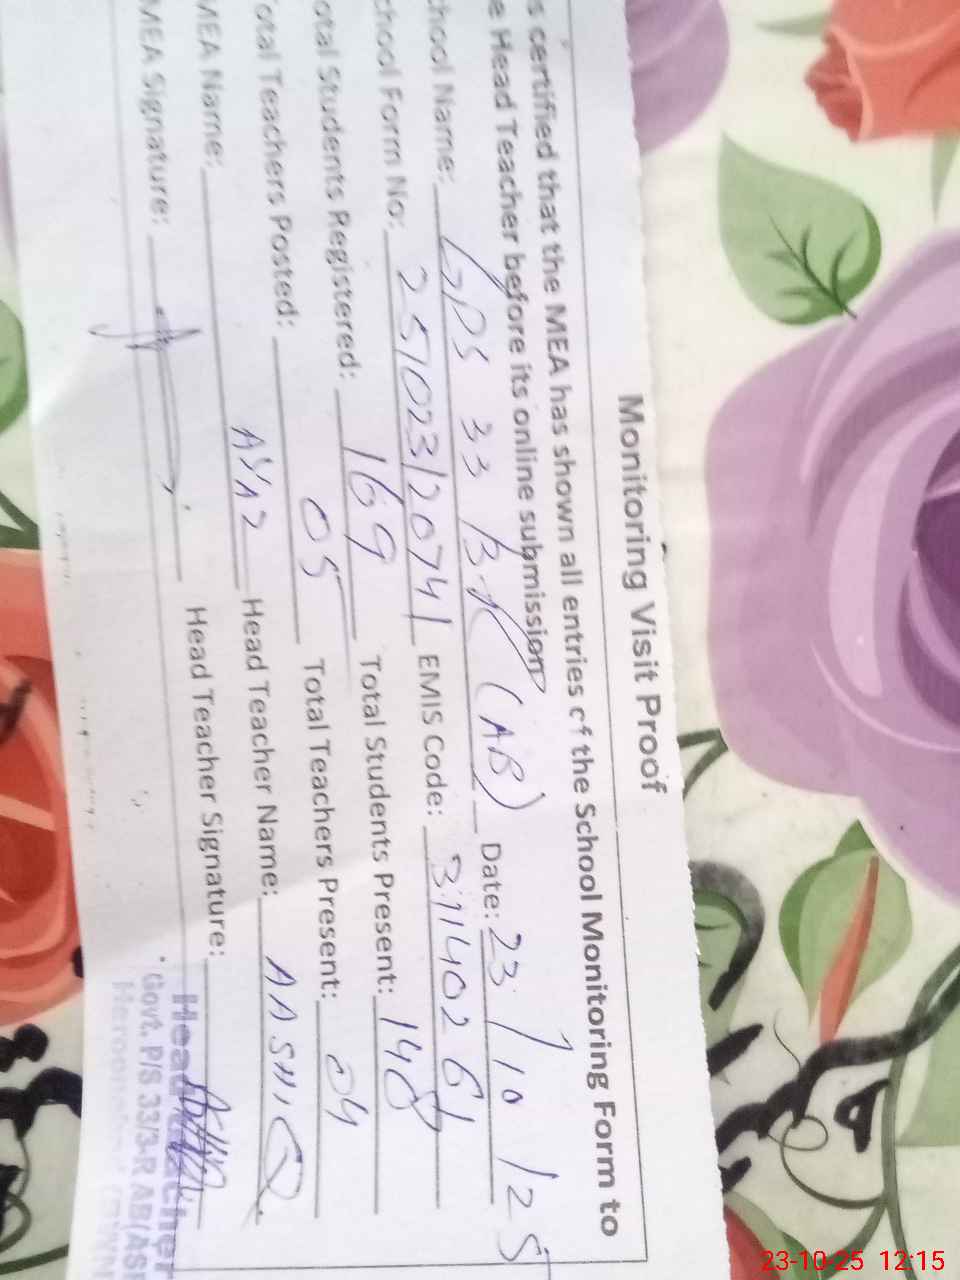 Monitoring Visit Proof
s certified that the MEA has shown all entries of the School Monitoring Form to
e Head Teacher before its online submission
hool Name: GPS 33 3-R (AB) Date: 23/10/25
chool Form No: 251023120741 EMIS Code: 31140261
otal Students Registered: 169 Total Students Present: 148
otal Teachers Posted: 05 Total Teachers Present: 04
MEA Name: AYAZ Head Teacher Name: AASHIQ
MEA Signature: Head Teacher Signature:
Head Teacher
Govt. P/S 33/3-R AB(AS
23-10-25 12:15